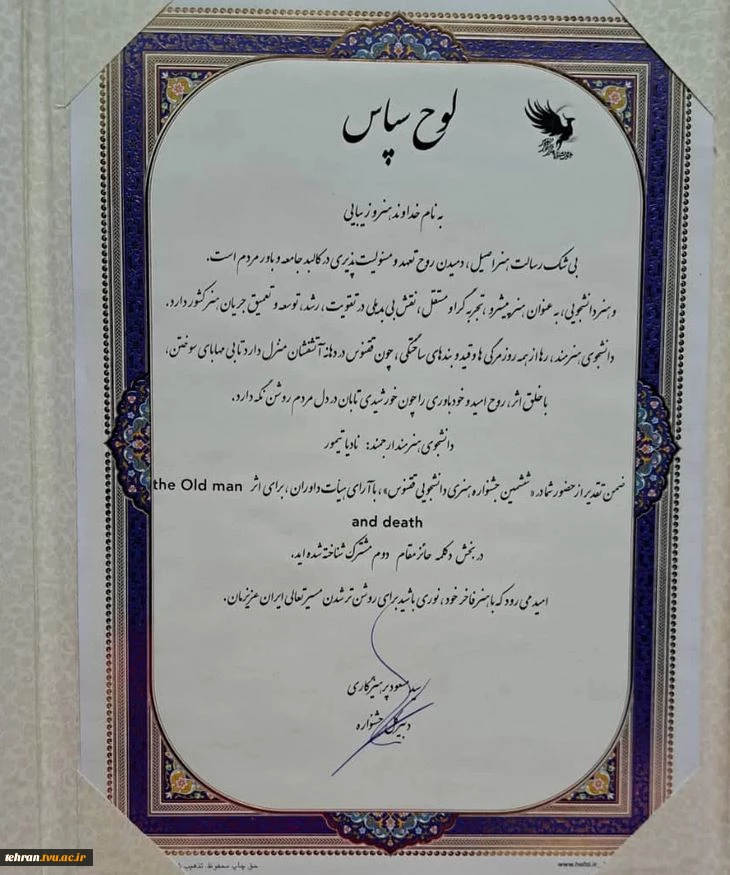 لوح سپاس
به نام خداوند هنر و زیبایی
بی شک رسالت هنر اصیل، دمیدن روح تعهد و مسئولیت پذیری در کالبد جامعه و باور مردم است.
و هنر دانشجویی، به عنوان هنر پیشرو، تجربه گرا و مستقل، نقش بی بدیلی در تقویت، رشد، توسعه و تعمیق جریان هنر کشور دارد.
دانشجوی هنرمند، رها از همه روزمرگی ها و قید و بندهای ساختگی، چون ققنوس در دهانه آتشفشان منزل دارد تا بی مهابای سوختن،
با خلق اثر، روح امید و خودباوری را چون خورشیدی تابان در دل مردم روشن نگه دارد.
دانشجوی هنرمند ارجمند: نادیا تیمور
ضمن تقدیر از حضور شما در «ششمین جشنواره هنری دانشجویی ققنوس»، با آرای هیأت داوران، برای اثر the Old man
and death
در بخش دکلمه حائز مقام دوم مشترک شناخته شده اید.
امید می رود که با هنر فاخر خود، نوری باشید برای روشن تر شدن مسیر تعالی ایران عزیزمان.
سید مسعود پرهیزکاری
دبیر کل جشنواره
حق چاپ محفوظ. تذهیب
tehran.tvu.ac.ir